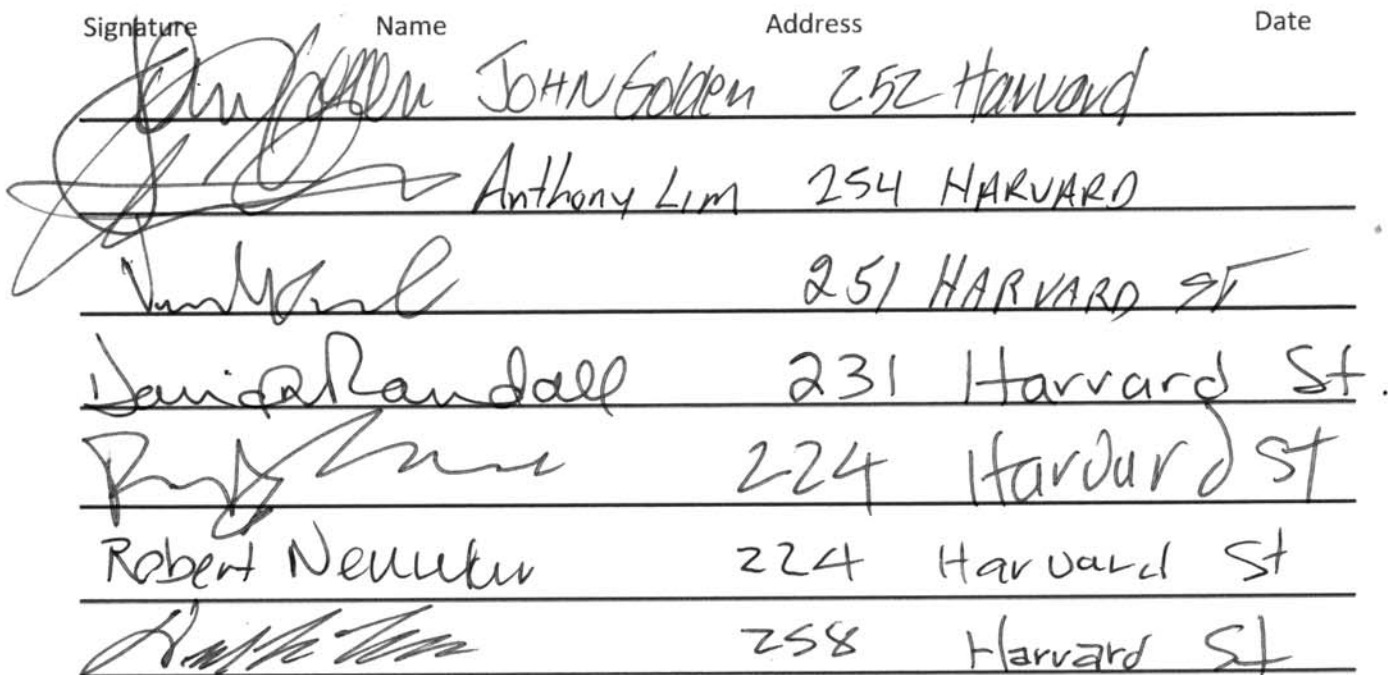 Signature Name Address Date
John Golden JOHN Golden 252 Harvard
Anthony Lim 254 HARVARD
251 HARVARD ST
David Randall 231 Harvard St.
224 Harvard St
Robert 224 Harvard St
258 Harvard St